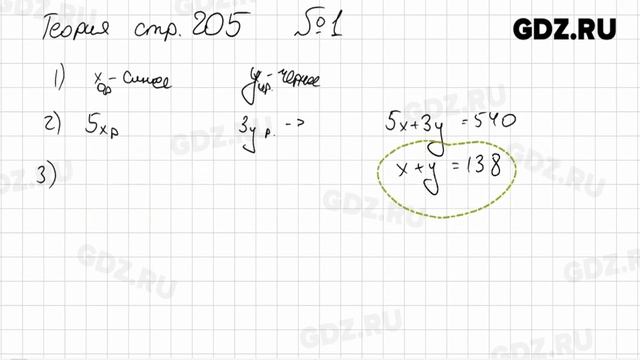 Теория стр. 205 №1
GDZ.RU
1) x - синее y - черное
2) 5x р 3y р. -> 5x+3y = 540
3) x+y = 138
GDZ.RU
GDZ.RU
GDZ.RU
GDZ.RU
GDZ.RU
GDZ.RU